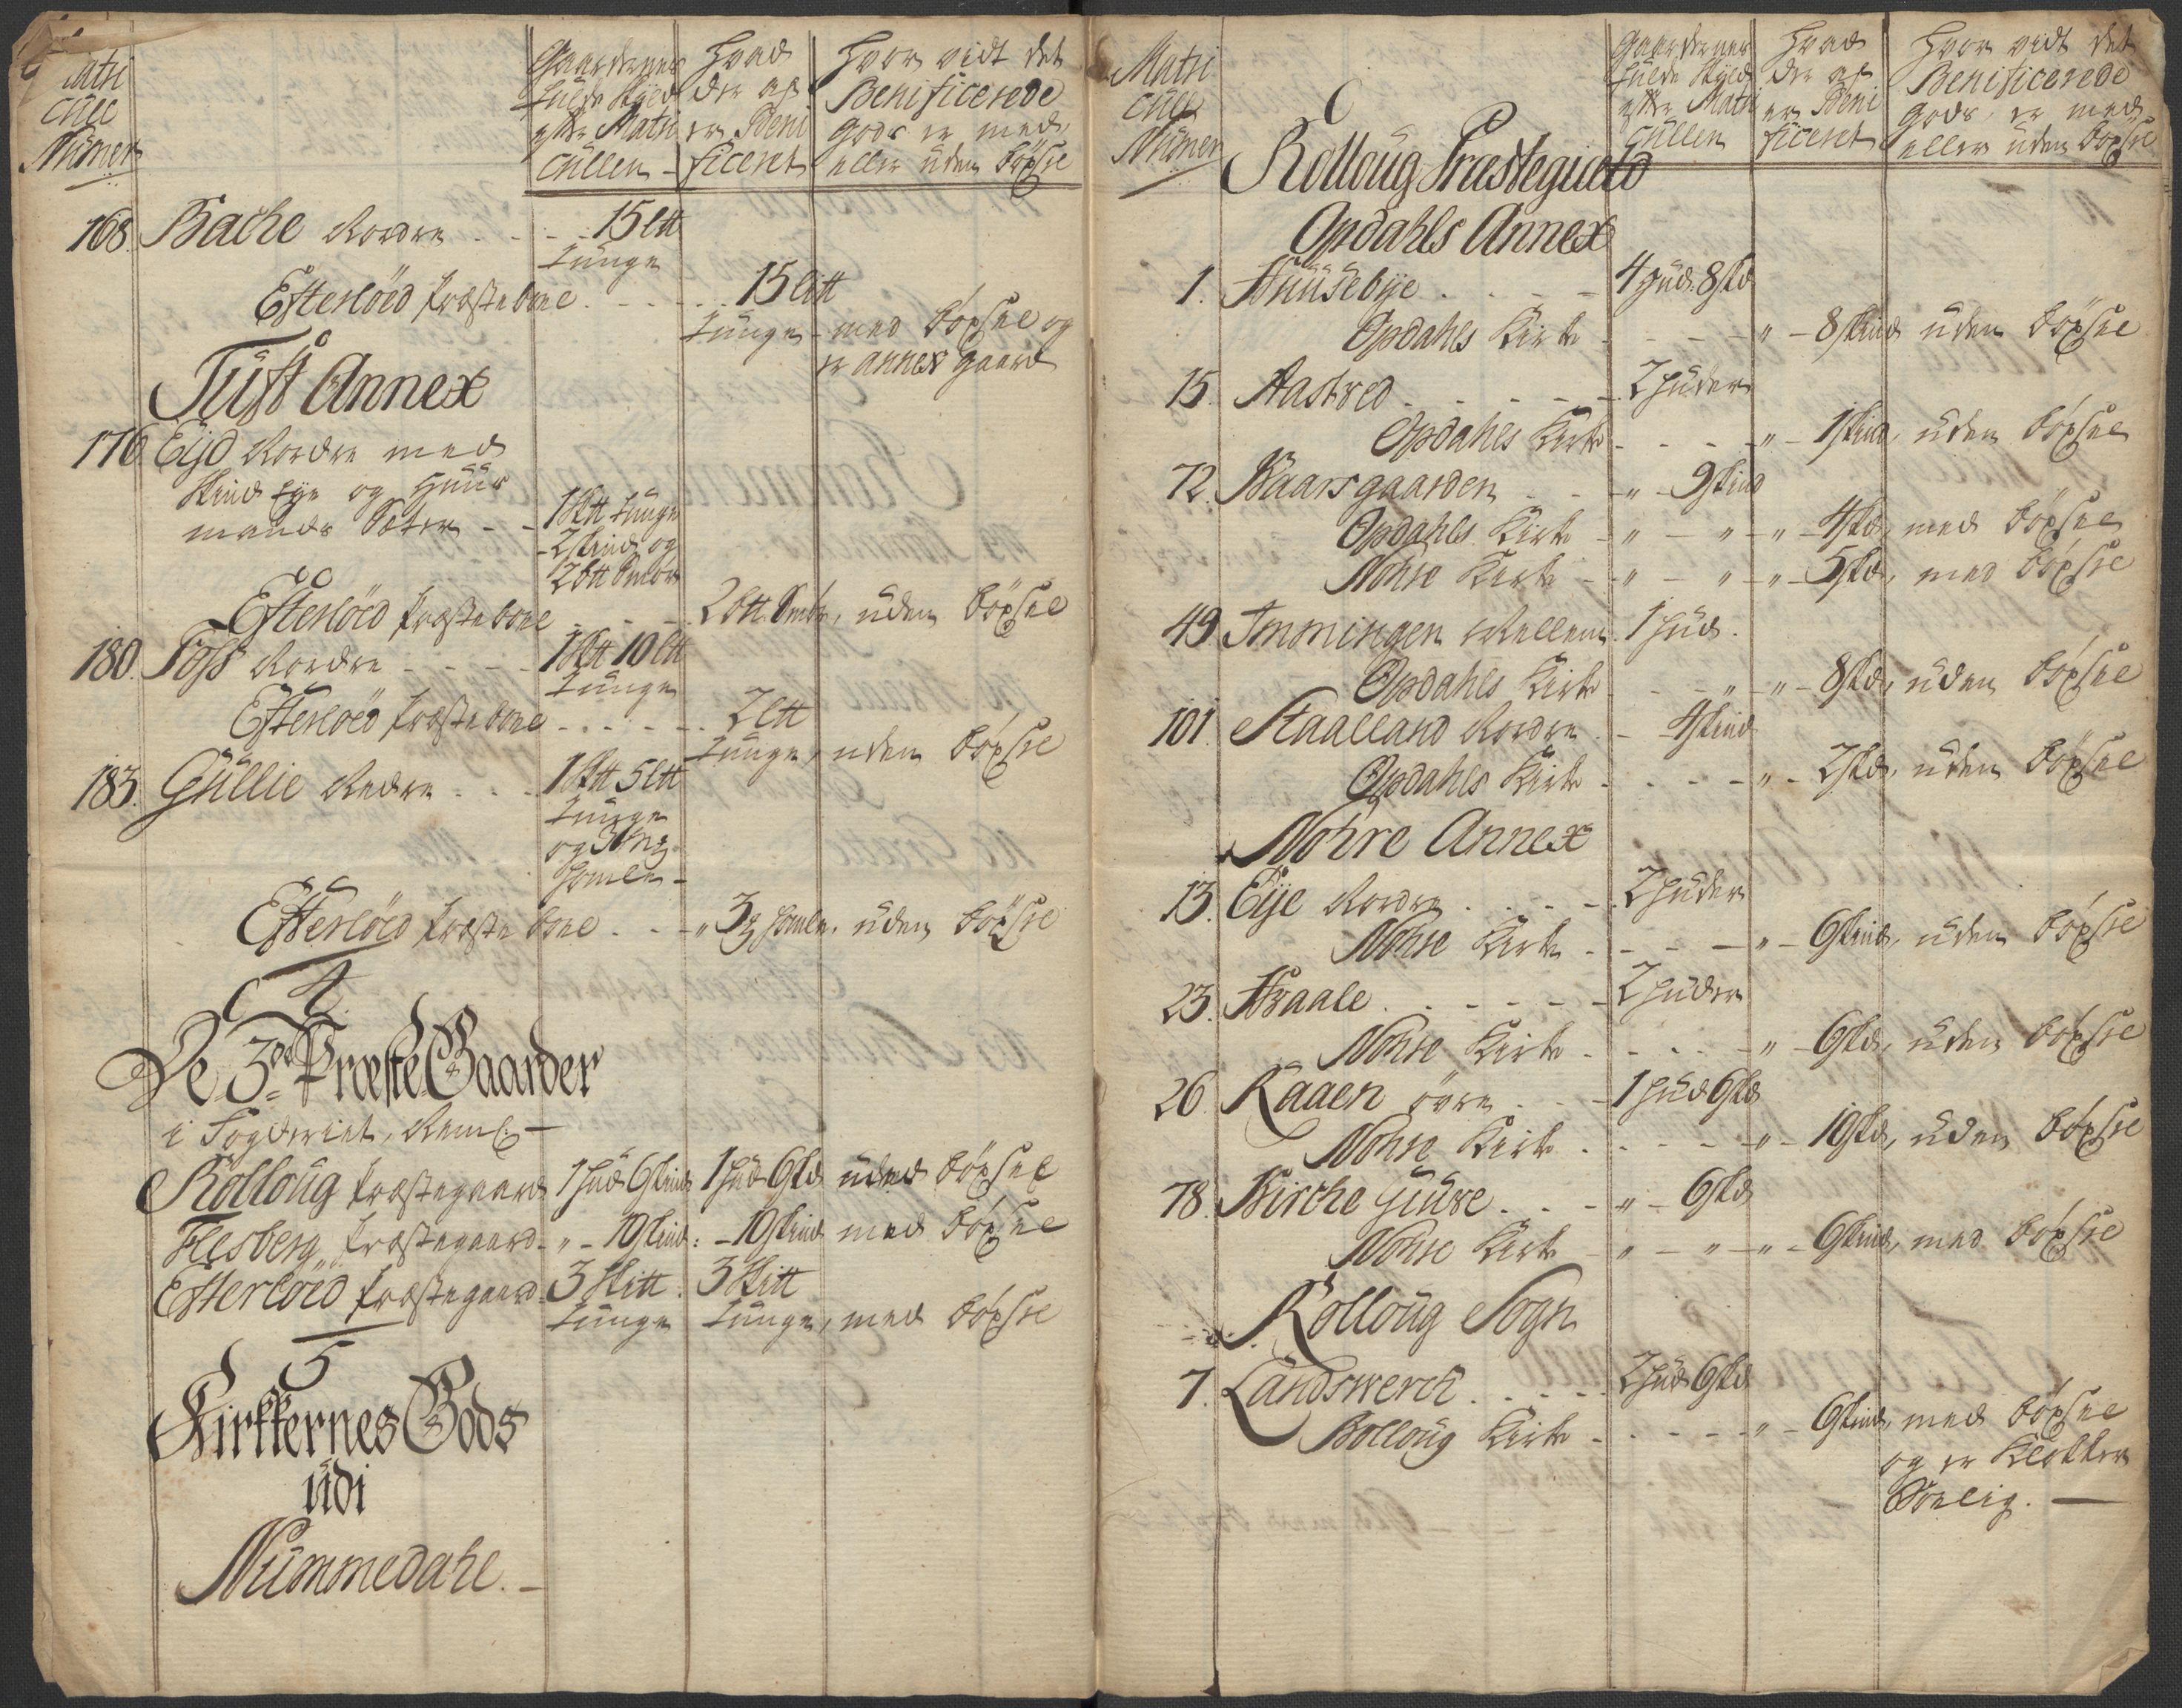 Matri
cull
Numer
Gaardernes
fulde Skyld
efter Matri
cullen -
Hvad
der af
er Beni
ficeret
Hvor vidt det
Benificerede
Gods er med
eller uden Böxsel
168. Bache Nordre - - - 15 Ltt
Tunge
Efterlöed Præstebool - - - 15 Litt
Tunge - med Böxsel og
er annex gaard
Tuft Annex
176 Eijd Nordre med
Skindtye og Huus
mands Sæter - - 1 Sktt Tunge
- 2 Skind og
2 Btt Smör
Efterlöed Præstebool - - - 2 Btt Smör, uden Böxsel
180. Foss Nordre - - - - 1 Sktt 10 Ltt
Tunge
Efterlöed Præstebool - - - - - 2 Ltt
Tunge, uden Böxsel
183. Gullie Nedre - - - 1 Sktt 5 Ltt
Tunge
og 3
Homle -
Efterlöed Præste bool - - - " 3 Homle, uden Böxsel
4
De 3de Præste Gaarder
i Fogderiet, Neml:
Rolloug Præstegaard 1 Hud 6 Skind 1 Hud 6 Skd uden Böxsel
Flesberg Præstegaard - " - 10 Skind : - 10 Skind med Böxsel
Efterlöed Præstegaard - 3 Skitt : 3 Skitt
Tunge Tunge, med Böxsel
5
Kirkkernes Gods
udi
Nummedahl. -
Matri
cull
Numer
Gaardernes
fulde Skyld
efter Matri
cullen
Hvad
der af
er Beni
ficeret
Hvor vidt det
Benificerede
Gods, er med
eller uden Böxsel
Rolloug Præstegield
Opdahls Annex
1. Huusebye - - - - 4 Hud: 8 Skd
Opdahls Kirke - - - - " - 8 Skind uden Böxsel
15. Aasteed - - - - - 2 Huder
Opdahls Kirke - - - - " - 1 Skind, uden Böxsel
72. Baarsgaarden - - - " - 9 Skind
Opdahls Kirke - " - " - " - 4 Skd, med Böxsel
Nohre Kirke - " - " - " - 5 Skd, med Böxsel
49 Immingen Mellem. 1 Hud.
Opdahls Kirke - - - " - " - 8 Skd, uden Böxsel
101. Staalland Nordre - - 4 Skind
Opdahls Kirke - - - - " - 2 Skd, uden Böxsel
Nohre Annex
13. Eije Nordre - - - - - 2 Huder
Nohre Kirke - - - - " - 6 Skind, uden Böxsel
23. Hvaale - - - - - 2 Huder
Nohre Kirke - - - - " - 6 Skd, uden Böxsel
26. Raaen övre - - - 1 Hud 6 Skd
Nohre Kirke - - - - " - 10 Skd, uden Böxsel
78. Kirche Huuse - - - " - 6 Skd
Nohre Kirke - " - " - " - 6 Skind, med Böxsel
Rolloug Sogn
7. Landswerch - - - - 2 Hud 6 Skd
Rolloug Kirke - - - - - " - 6 Skind, med Böxsel
og er Klokker
Boelig. -